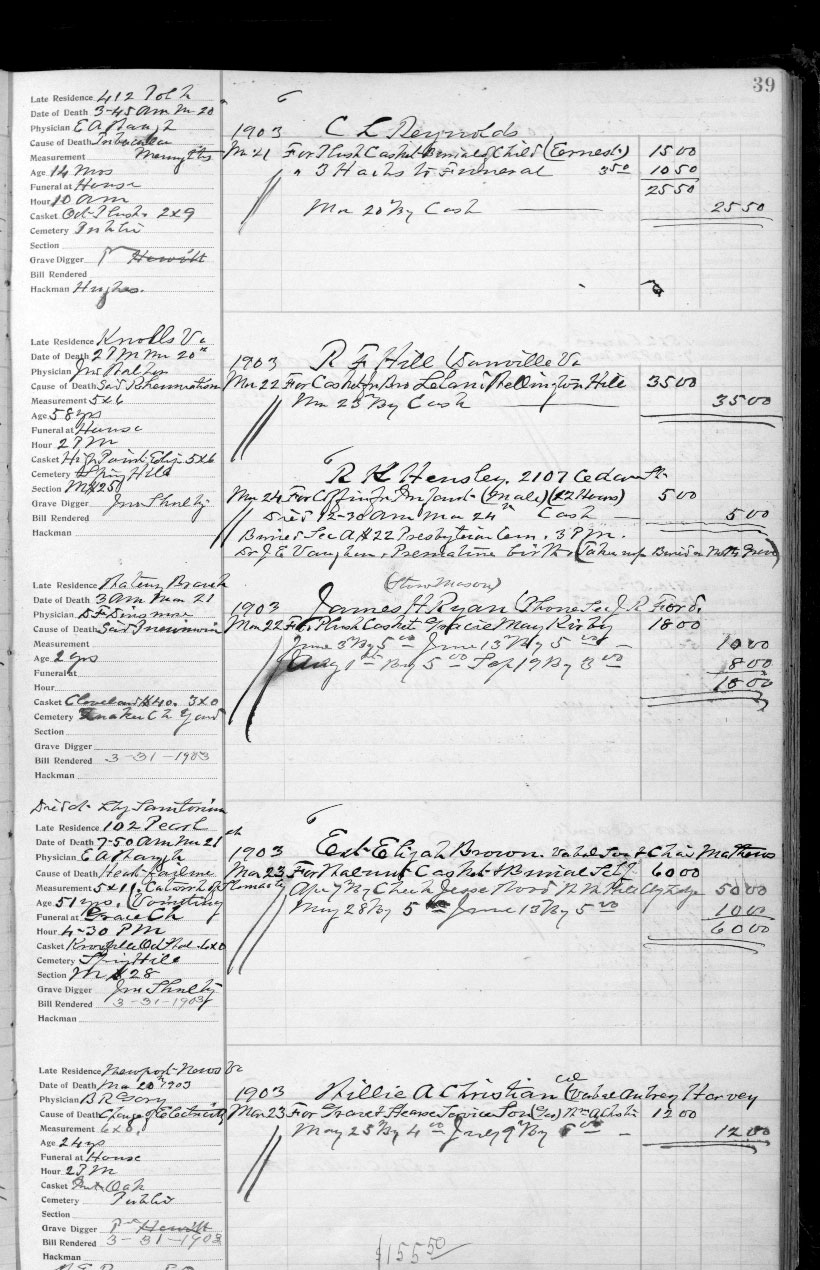 39
Late Residence 412
Date of Death 3-45 am Mar 20
Physician E A
Cause of Death Tubercular
Measurement
Age 14 Mos
Funeral at House
Hour 10 am
Casket Oct. Plush 2x9
Cemetery Public
Section
Grave Digger Hewitt
Bill Rendered
Hackman Hughes.
1903 C L Reynolds
Mar 21 For Plush Casket Burial of Child (Earnest) 15 00
" 3 Hacks to Funeral 3 50 10 50
25 50
Mar 20 By Cash 25 50
Late Residence Knolls Va
Date of Death 2 PM Mar 20th
Physician
Cause of Death Said
Measurement 5x6
Age 58 yrs
Funeral at House
Hour 2 PM
Casket High Point 5x6
Cemetery Spring Hill
Section
Grave Digger Jno
Bill Rendered
Hackman
1903 R F Hill Danville Va
Mar 22 For Casket for Hill 35 00
Mar 23 By Cash 35 00
R K Hensley. 2107 Cedar St
Mar 24 For Coffin for Infant (Male) (12 Hours) 5 00
Died 12-30 am Mar 24th Cash 5 00
Buried Sec A # 22 Presbyterian Cem. 3 P.M.
Dr J E Vaughan. Premature birth (Taken up Buried in Mothers Grave)
Late Residence Branch
Date of Death 3 am Mar 21
Physician D F Dinsmore
Cause of Death Said Pneumonia
Measurement
Age 2 yrs
Funeral at
Hour
Casket Cleveland #40. 3x0
Cemetery Quaker Ch Yard
Section
Grave Digger
Bill Rendered 3-31-1903
Hackman
(Stone Mason)
1903 James H Ryan (Phone to J R Ford.
Mar 22 For Plush Casket Gracie May Kirby 18 00
June 3 By 5 00 June 13 By 5 00 10 00
Aug 1st By 5 00 Sep 19 By 3 00 8 00
18 00
Died at Lbg Sanitorium
Late Residence 102 Pearl
Date of Death 7-50 am Mar 21st
Physician E A
Cause of Death Heart Failure
Measurement 5x11. Catarrh of Stomach
Age 51 yrs. (Vomiting
Funeral at Grace Ch
Hour 4-30 PM
Casket 6x0
Cemetery Spring Hill
Section 28
Grave Digger Jno
Bill Rendered 3-31-1903
Hackman
1903 Est Elijah Brown. Chas Mathews
Mar 23 For Walnut Casket & Burial Self 60 00
Apr 7 By Check Jesse 50 00
May 28 By 5 00 June 13 By 5 00 10 00
60 00
Late Residence Newport News Va
Date of Death Mar 20th 1903
Physician B R Gary
Cause of Death Charge of Electricity
Measurement 6x0.
Age 24 yrs
Funeral at House
Hour 2 PM
Casket Oak
Cemetery Public
Section
Grave Digger Hewitt
Bill Rendered 3-31-1903
Hackman
1903 Willie A Christian Col Aubrey Harvey
Mar 23 For Grave & Hearse Service Son 12 00
May 25 By 4 00 July 9 By 8 00 12 00
$155 50